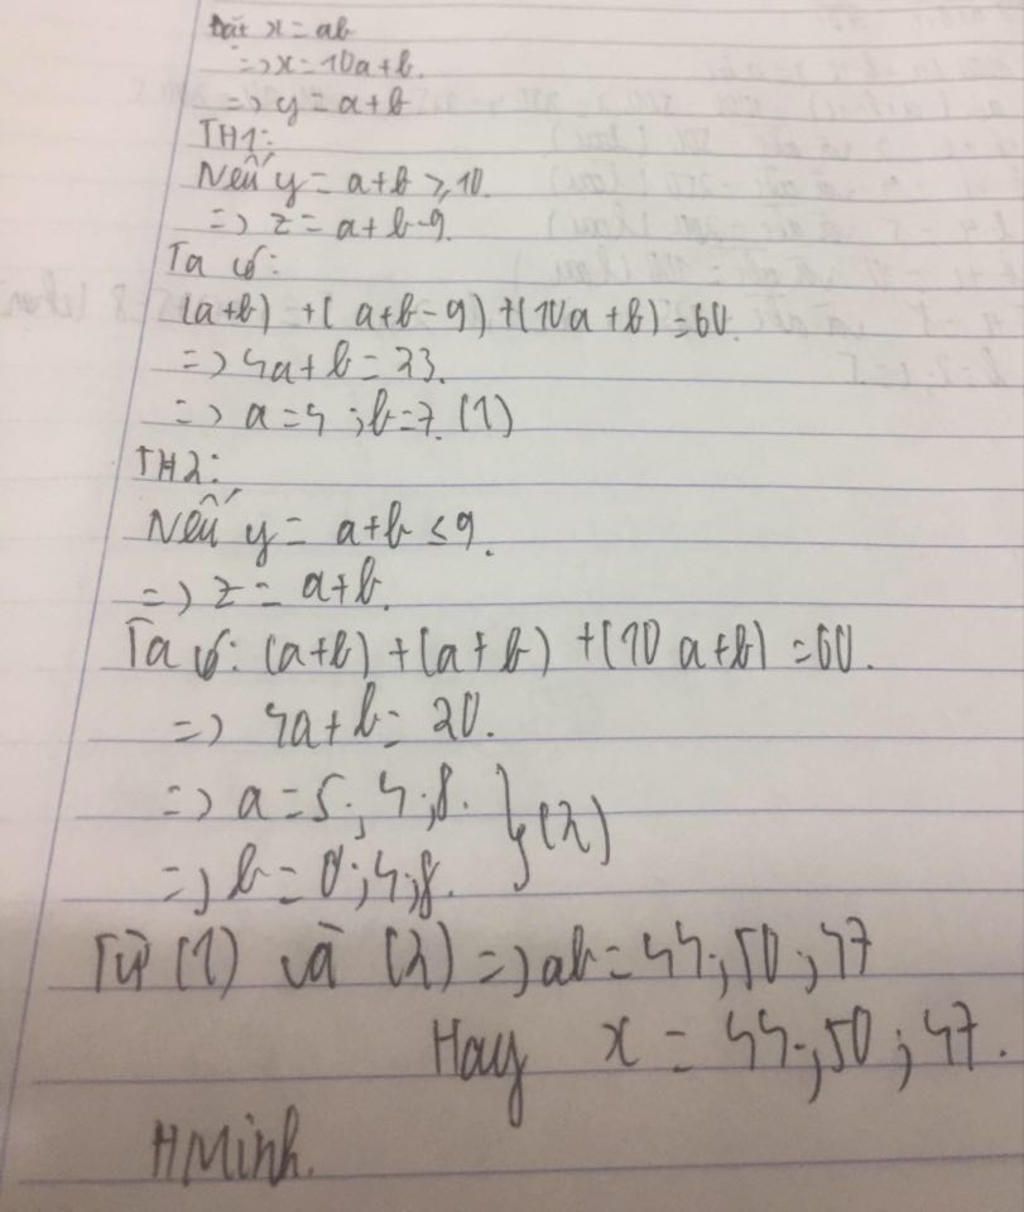 Đặt x = ab
=> x = 10a + b.
=> y = a + b
TH1:
Nếu y = a + b ≥ 10.
=> z = a + b - 9.
Ta có:
(a+b) + (a+b-9) + (10a+b) = 60.
=> 4a + b = 23.
=> a = 4 ; b = 7. (1)
TH2:
Nếu y = a + b ≤ 9.
=> z = a + b.
Ta có: (a+b) + (a+b) + (10a+b) = 60.
=> 4a + b = 20.
=> a = 5 ; 4 ; 8. } (2)
=> b = 0 ; 4 ; 8.
Từ (1) và (2) => ab = 44 ; 50 ; 47
Hay x = 44 ; 50 ; 47.
HMinh.